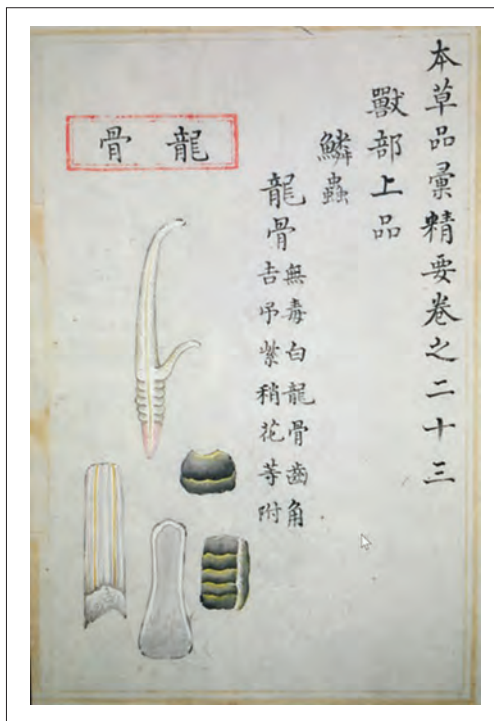 本草品彙精要卷之二十三
獸部上品
鱗蟲
龍骨
無毒白龍骨齒角
吉吊紫稍花等附
龍骨